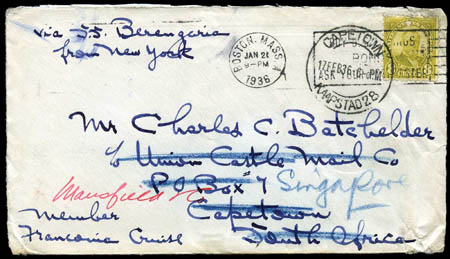 via S.S. Berengaria
from New York
BOSTON, MASS.
JAN 2
9-PM
1936
CAPETOWN
17 FEB 36
KAAPSTAD 28
Mr Charles C. Batchelder
c/o Union Castle Mail Co
P O Box 7
Singapore
Mansfield
Capetown
South Africa
Member
Franconia Cruise